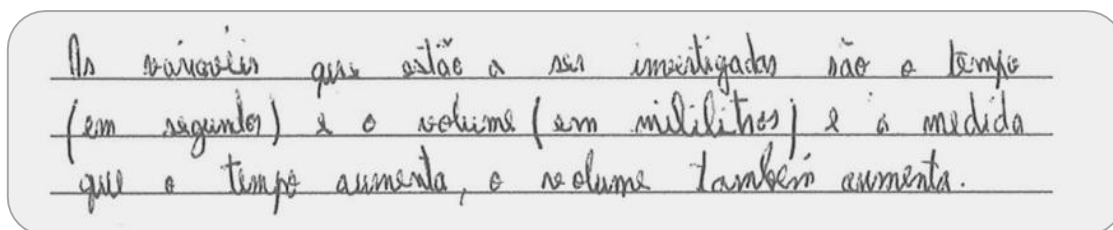 As variavéis que estão a ser investigadas são o tempo
(em segundos) e o volume (em mililitros) e à medida
que o tempo aumenta, o volume também aumenta.